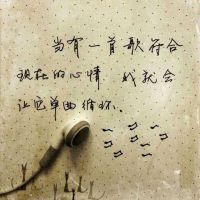 当有一首歌符合
现在的心情，我就会
让它单曲循环.